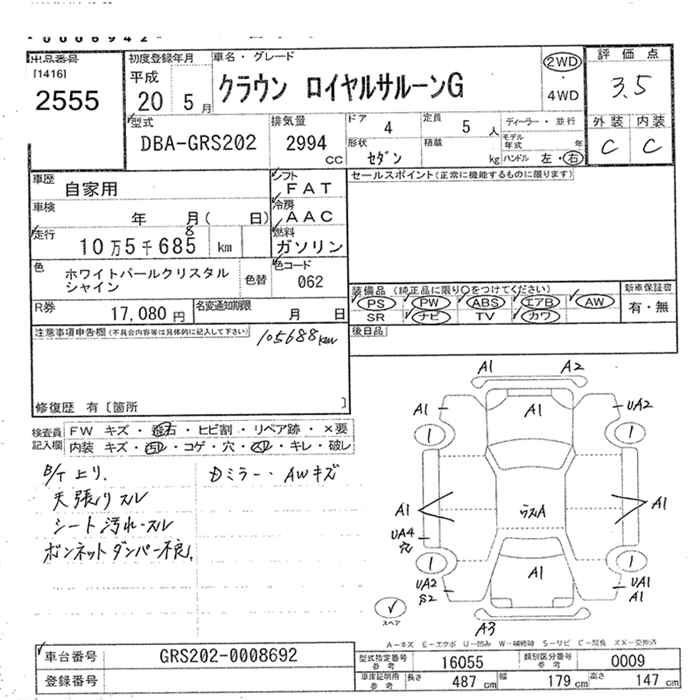 出品番号
[1416]
2555
初度登録年月
平成
20 5月
車名・グレード
クラウン ロイヤルサルーンG
2WD
・
4WD
評価点
3.5
型式
DBA-GRS202
排気量
2994
cc
ドア 4
定員 5 人
形状 セダン
積載 kg
ディーラー・並行
モデル年式 年
ハンドル 左・右
外装 内装
C C
車歴 自家用
シフト FAT
車検 年 月( 日)
冷房 AAC
走行 10万5千685 km
8
燃料 ガソリン
色 ホワイトパールクリスタル
シャイン
色替
色コード 062
R券 17,080円
名変通知期限 月 日
セールスポイント(正常に機能するものに限ります)
装備品 (純正品に限り○をつけてください)
PS PW ABS エアB AW
SR ナビ TV カワ
新車保証書
有・無
後日品
注意事項申告欄(不具合内容等は具体的に記入して下さい)
105688km
修復歴 有 [箇所 ]
検査員記入欄
FW キズ・飛石・ヒビ割・リペア跡・×要
内装 キズ・・コゲ・穴・・キレ・破レ
天張リスレ
シート汚れ・スレ
ボンネットダンパー不良
Dミラー・AWキズ
A1 A2
A1 A1 UA2
1 1
A1 ウスA A1
UA4
穴
1 1
UA2
S2
A1
UA1
A1
スペア
A3
A=キズ E=エクボ U=凹み W=補修跡 S=サビ C=腐食 XX=交換済
車台番号 GRS202-0008692
登録番号
型式指定番号 参考 16055
類別区分番号 参考 0009
車庫証明用 参考 長さ 487 cm 幅 179 cm 高さ 147 cm